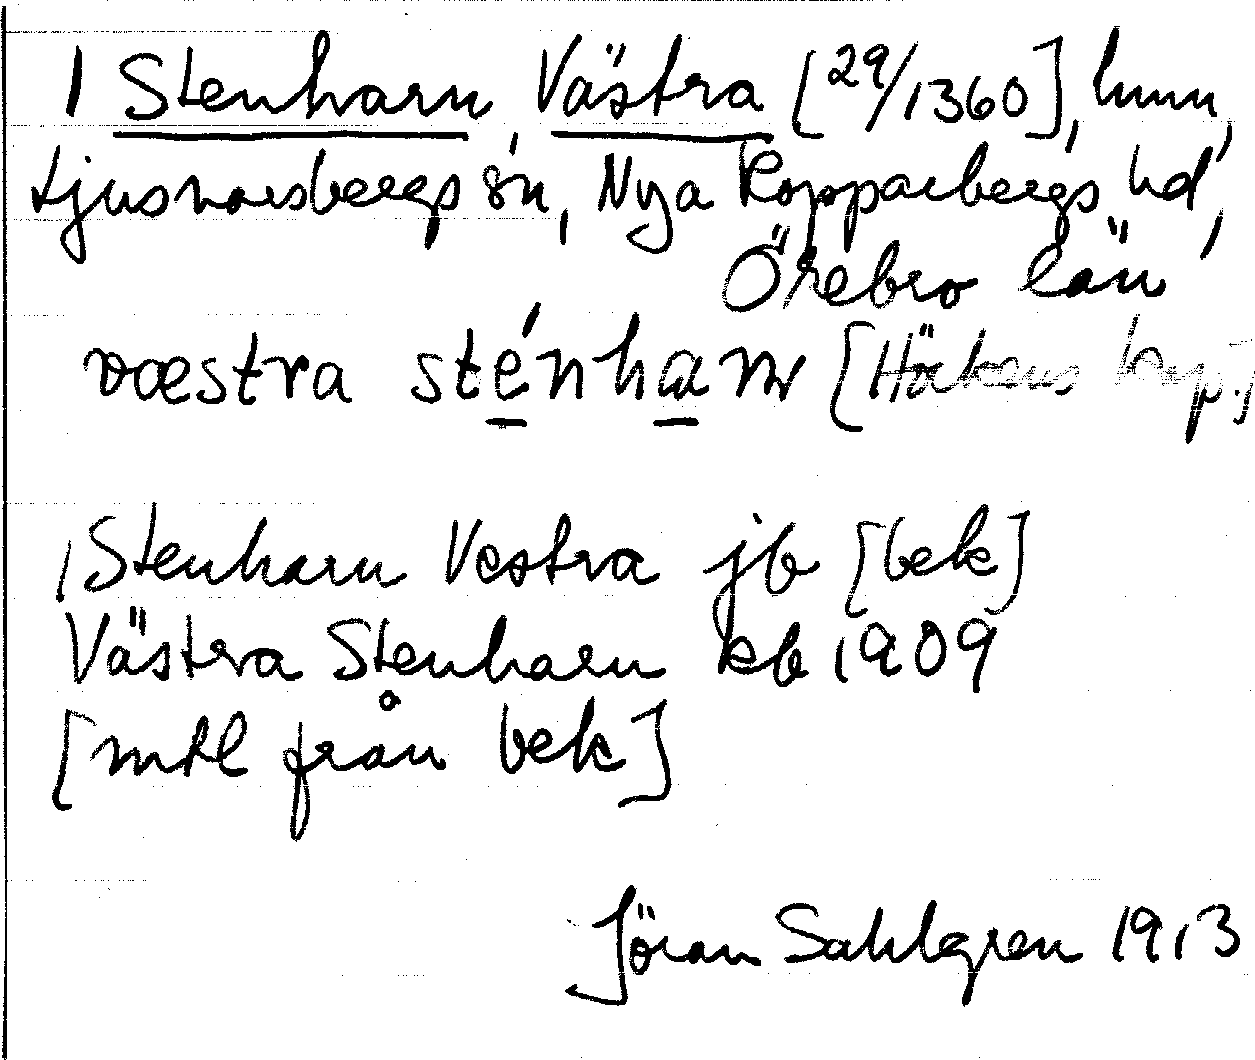 1 Stenharn, Västra [29/1360], hmn,
Ljusnarsbergs sn, Nya Kopparbergs hd,
Örebro län
væstra sténhanr [Hörkens kap.]
1 Stenharn Vestra jb [bek]
Västra Stenharn kb 1909
[mtl från bek]
Jöran Sahlgren 1913